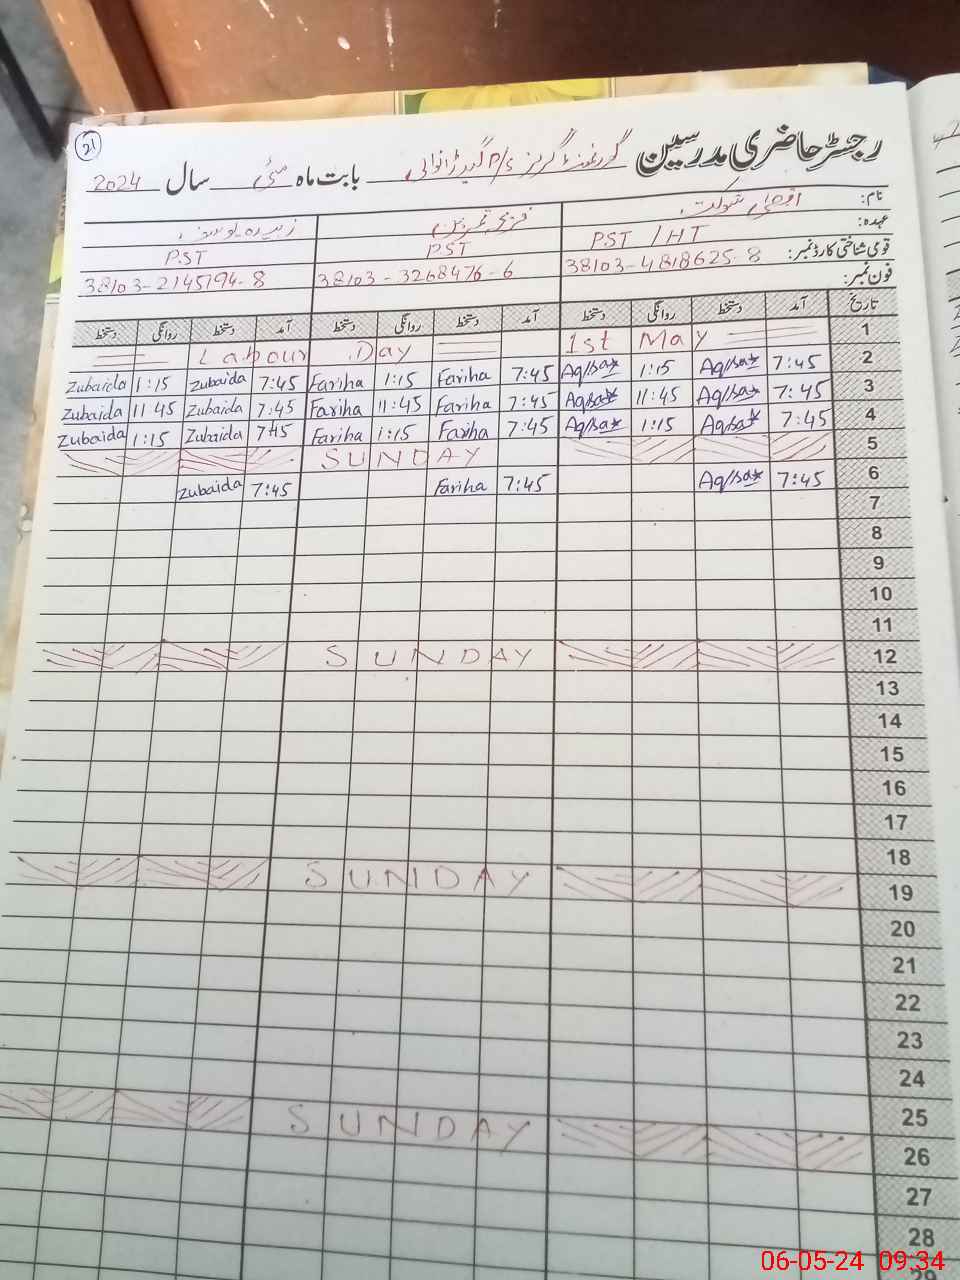 21
رجسٹر حاضری مدرسین گورنمنٹ گرلز P/S بابت ماہ مئی سال 2024
نام: اقصیٰ شوکت
عہدہ: PST / HT PST PST
قومی شناختی کارڈ نمبر: 38103-4818625-8 38103-3268476-6 38103-2145794-8
فون نمبر:
تاریخ آمد دستخط روانگی دستخط آمد دستخط روانگی دستخط آمد دستخط روانگی دستخط
Labour Day 1st May 1
Zubaida 1:15 Zubaida 7:45 Fariha 1:15 Fariha 7:45 Aqsa 1:15 Aqsa 7:45 2
Zubaida 11:45 Zubaida 7:45 Fariha 11:45 Fariha 7:45 Aqsa 11:45 Aqsa 7:45 3
Zubaida 1:15 Zubaida 7:45 Fariha 1:15 Fariha 7:45 Aqsa 1:15 Aqsa 7:45 4
SUNDAY 5
Zubaida 7:45 Fariha 7:45 Aqsa 7:45 6
7
8
9
10
11
SUNDAY 12
13
14
15
16
17
18
SUNDAY 19
20
21
22
23
24
25
SUNDAY 26
27
28
29
06-05-24 09:34